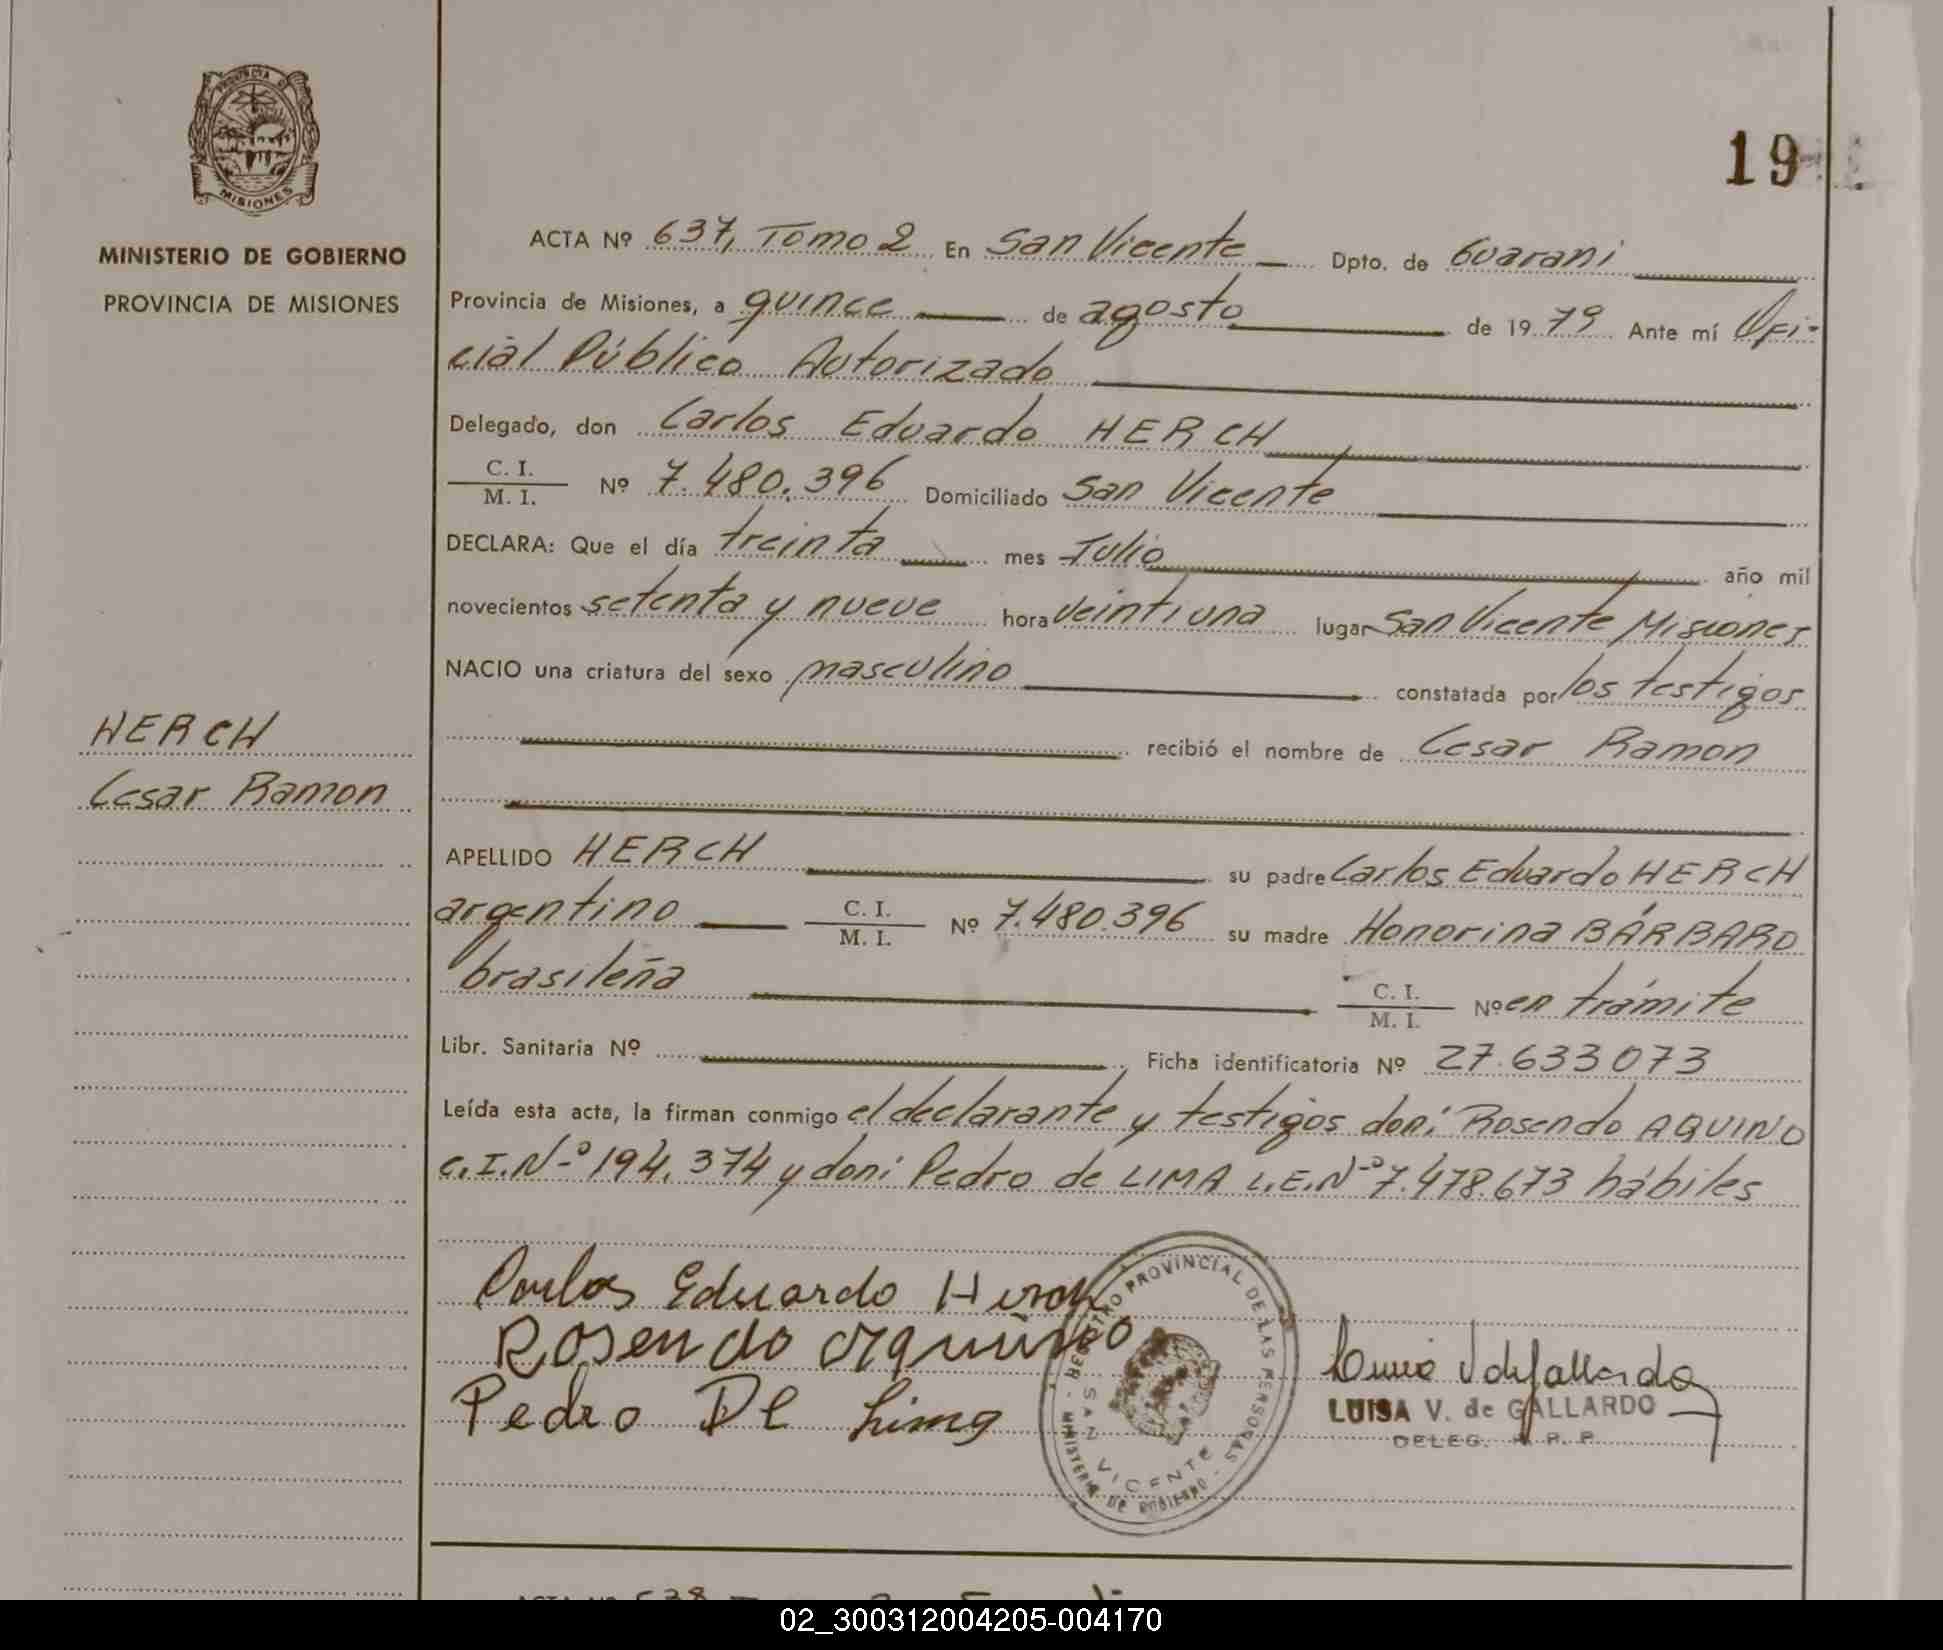 PROVINCIA D
MISIONES
MINISTERIO DE GOBIERNO
PROVINCIA DE MISIONES
19
ACTA Nº 637, Tomo 2 En San Vicente Dpto. de Guarani
Provincia de Misiones, a quince de agosto de 1979 Ante mí Ofi-
cial Público Autorizado
Delegado, don Carlos Eduardo HERCH
C. I.
M. I. Nº 7.480.396 Domiciliado San Vicente
DECLARA: Que el día treinta mes Julio año mil
novecientos setenta y nueve hora veintiuna lugar San Vicente Misiones
NACIO una criatura del sexo masculino constatada por los testigos
recibió el nombre de Cesar Ramon
HERCH
Cesar Ramon
APELLIDO HERCH su padre Carlos Eduardo HERCH
argentino C. I. M. I. Nº 7.480.396 su madre Honorina BÁRBARO
brasileña C. I. M. I. Nº en trámite
Libr. Sanitaria Nº Ficha identificatoria Nº 27.633073
Leída esta acta, la firman conmigo el declarante y testigos don: Rosendo AQUINO
C.I.Nº 194.374 y don: Pedro de LIMA L.E.Nº 7.478.673 hábiles
Carlos Eduardo Herch
Rosendo Aquino
Pedro De Lima
REGISTRO PROVINCIAL DE LAS PERSONAS - MINISTERIO DE GOBIERNO -
SAN VICENTE
LUISA V. de GALLARDO
DELEG. R. P. P.
ACTA Nº 638
02_300312004205-004170